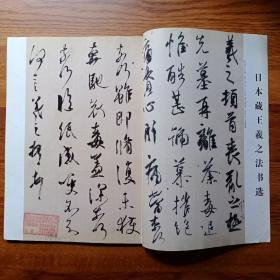 日本藏王羲之法书选
羲之顿首丧乱之极
先墓再离荼毒追
惟酷甚号慕摧绝
痛贯心肝痛当奈何
奈何虽即修复未获
奔驰哀毒益深奈何
奈何临纸感哽不知
何言羲之顿首